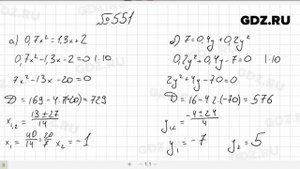 №551
GDZ.RU
а) 0,7x² = 1,3x + 2
0,7x² - 1,3x - 2 = 0 | · 10
7x² - 13x - 20 = 0
D = 169 - 4·7·(-20) = 729
x₁,₂ = (13 ± 27)/14
x₁ = 40/14 = 20/7 x₂ = -1
б) 7 = 0,4y + 0,2y²
0,2y² + 0,4y - 7 = 0 | · 10
2y² + 4y - 70 = 0
D = 16 - 4·2·(-70) = 576
y₁,₂ = (-4 ± 24)/4
y₁ = -7 y₂ = 5